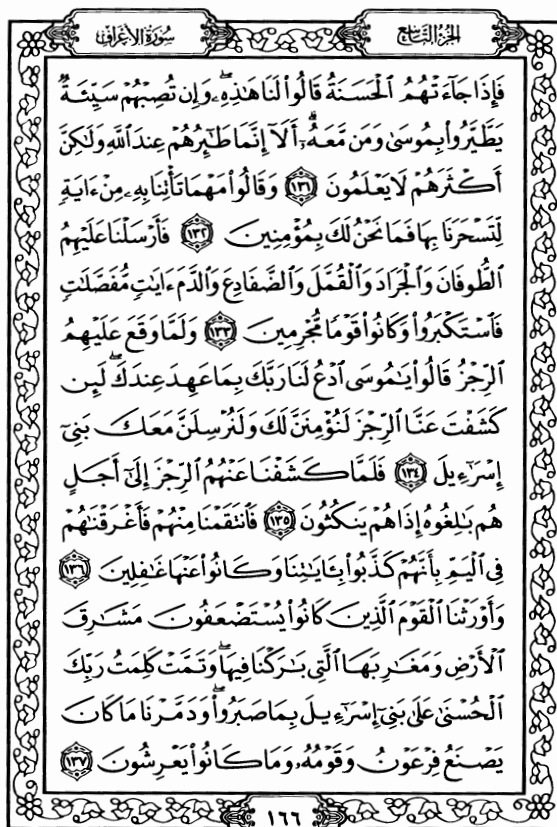 سُورَةُ الأَعْرَافِ الجُزْءُ التَّاسِعُ
فَإِذَا جَآءَتْهُمُ ٱلْحَسَنَةُ قَالُوا۟ لَنَا هَٰذِهِۦ ۖ وَإِن تُصِبْهُمْ سَيِّئَةٌ
يَطَّيَّرُوا۟ بِمُوسَىٰ وَمَن مَّعَهُۥٓ ۗ أَلَآ إِنَّمَا طَٰٓئِرُهُمْ عِندَ ٱللَّهِ وَلَٰكِنَّ
أَكْثَرَهُمْ لَا يَعْلَمُونَ ١٣١ وَقَالُوا۟ مَهْمَا تَأْتِنَا بِهِۦ مِنْ ءَايَةٍ
لِّتَسْحَرَنَا بِهَا فَمَا نَحْنُ لَكَ بِمُؤْمِنِينَ ١٣٢ فَأَرْسَلْنَا عَلَيْهِمُ
ٱلطُّوفَانَ وَٱلْجَرَادَ وَٱلْقُمَّلَ وَٱلضَّفَادِعَ وَٱلدَّمَ ءَايَٰتٍ مُّفَصَّلَٰتٍ
فَٱسْتَكْبَرُوا۟ وَكَانُوا۟ قَوْمًا مُّجْرِمِينَ ١٣٣ وَلَمَّا وَقَعَ عَلَيْهِمُ
ٱلرِّجْزُ قَالُوا۟ يَٰمُوسَى ٱدْعُ لَنَا رَبَّكَ بِمَا عَهِدَ عِندَكَ ۖ لَئِن
كَشَفْتَ عَنَّا ٱلرِّجْزَ لَنُؤْمِنَنَّ لَكَ وَلَنُرْسِلَنَّ مَعَكَ بَنِىٓ
إِسْرَٰٓءِيلَ ١٣٤ فَلَمَّا كَشَفْنَا عَنْهُمُ ٱلرِّجْزَ إِلَىٰٓ أَجَلٍ
هُم بَٰلِغُوهُ إِذَا هُمْ يَنكُثُونَ ١٣٥ فَٱنتَقَمْنَا مِنْهُمْ فَأَغْرَقْنَٰهُمْ
فِى ٱلْيَمِّ بِأَنَّهُمْ كَذَّبُوا۟ بِـَٔايَٰتِنَا وَكَانُوا۟ عَنْهَا غَٰفِلِينَ ١٣٦
وَأَوْرَثْنَا ٱلْقَوْمَ ٱلَّذِينَ كَانُوا۟ يُسْتَضْعَفُونَ مَشَٰرِقَ
ٱلْأَرْضِ وَمَغَٰرِبَهَا ٱلَّتِى بَٰرَكْنَا فِيهَا ۖ وَتَمَّتْ كَلِمَتُ رَبِّكَ
ٱلْحُسْنَىٰ عَلَىٰ بَنِىٓ إِسْرَٰٓءِيلَ بِمَا صَبَرُوا۟ ۖ وَدَمَّرْنَا مَا كَانَ
يَصْنَعُ فِرْعَوْنُ وَقَوْمُهُۥ وَمَا كَانُوا۟ يَعْرِشُونَ ١٣٧
١٦٦